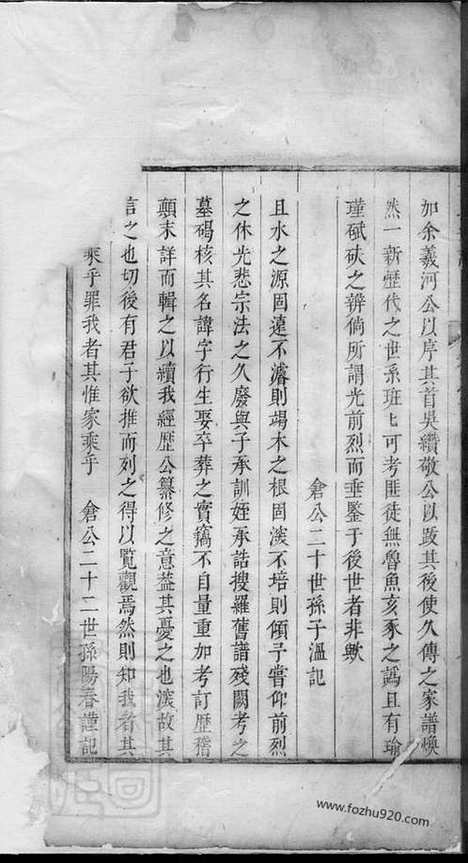 加余義河公以序其首吳纘敬公以跋其後使久傳之家譜煥
然一新歷代之世系班匕可考匪徒無魯魚亥豕之譌且有瑜
瑾砥砆之辨倘所謂光前烈而垂鑒于後世者非歟
倉公二十世孫子溫記
且水之源固遠不濬則竭木之根固深不培則傾予嘗仰前烈
之休光悲宗法之久廢與子承訓姪承誥搜羅舊譜殘闕考之
墓碣核其名諱字行生娶卒葬之實竊不自量重加考訂歷稽
顛末詳而輯之以續我經歷公纂修之意蓋其憂之也深故其
言之也切後有君子欲推而列之得以覧觀焉然則知我者其
乘乎罪我者其惟家乘乎 倉公二十二世孫陽春謹記
www.fozhu920.com